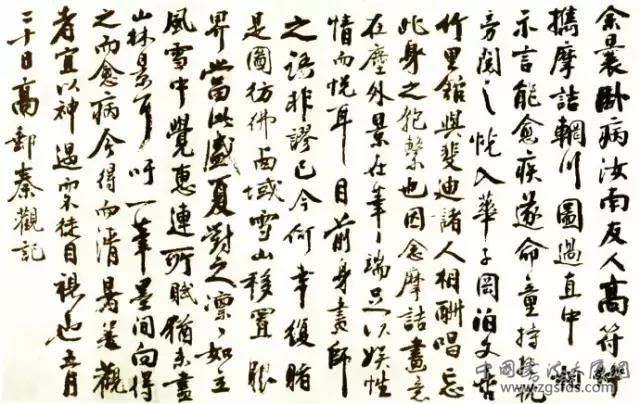 余曩卧病汝南友人高符仲
攜摩詰輞川圖過直中相
示言能愈疾遂命童持於
旁閱之恍入華子岡泊文杏
竹里館與斐迪諸人相酬唱忘
此身之匏繫也因念摩詰畫意
在塵外景在筆端足以娛性
情而悅耳目前身畫師
之語非謬已今何幸復睹
是圖彷彿西域雪山移置眼
界當此盛夏對之凛〻如立
風雪中覺惠連所賦猶未盡
山林景耳吁一筆墨間向得
之而愈病今得而清暑善觀
者宜以神遇而不徒目視也五月
二十日高郵秦觀記
www.zgsfds.com